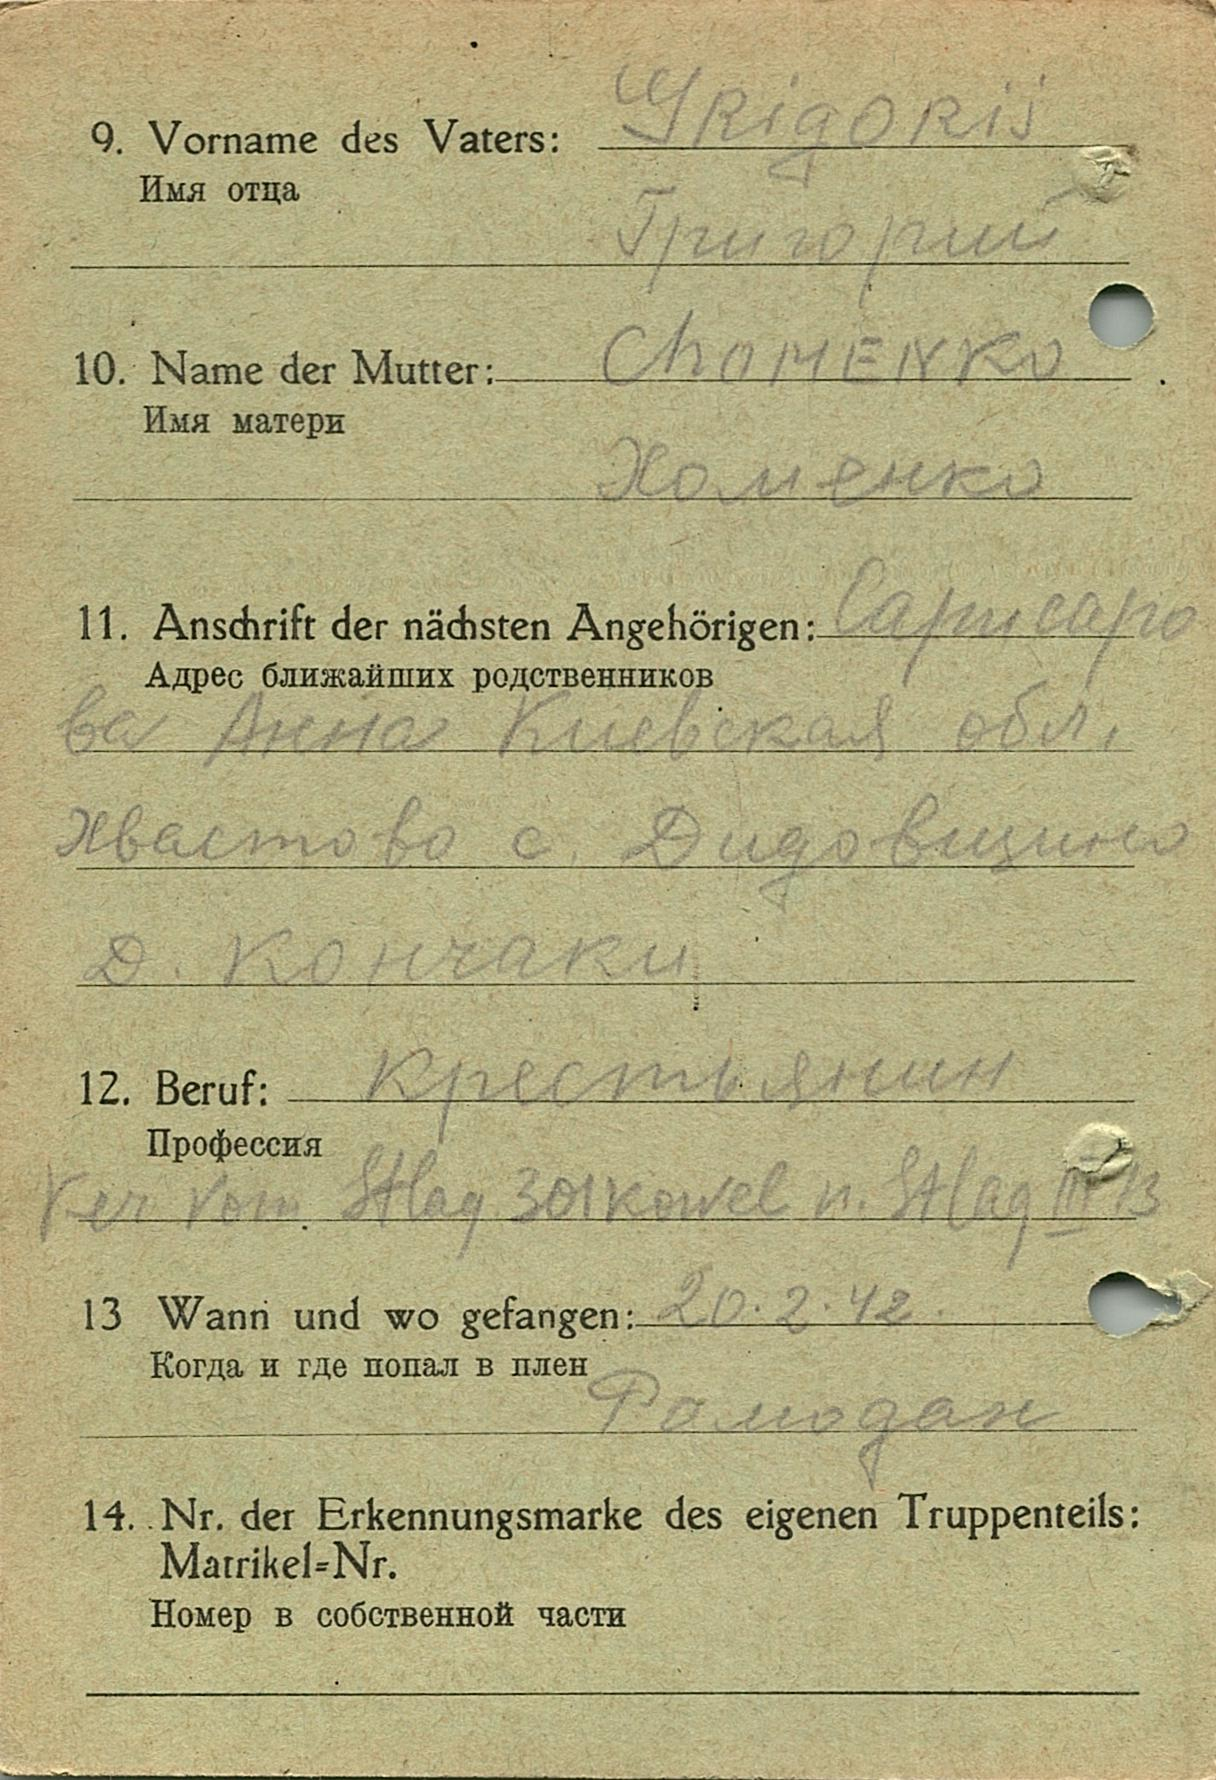 9. Vorname des Vaters: Grigorij
Имя отца
Григорий
10. Name der Mutter: Chomenko
Имя матери
Хоменко
11. Anschrift der nächsten Angehörigen:
Адрес ближайших родственников
ва Анна Киевская обл.
Хвастово с. Дидовщино
Д. Кончаки
12. Beruf: Крестьянин
Профессия
Ver vom Stlag 301 Kowel n. Stlag III B
13 Wann und wo gefangen: 20.2.42.
Когда и где попал в плен
Ромодан
14. Nr. der Erkennungsmarke des eigenen Truppenteils:
Matrikel=Nr.
Номер в собственной части